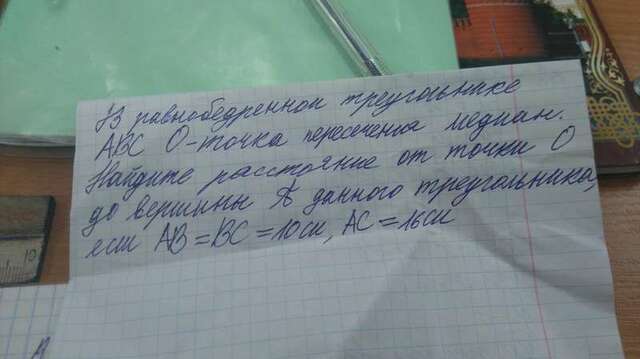 В равнобедренном треугольнике
ABC O-точка пересечения медиан.
Найдите расстояние от точки O
до вершины A данного треугольника,
если AB=BC=10см, AC=16см
10